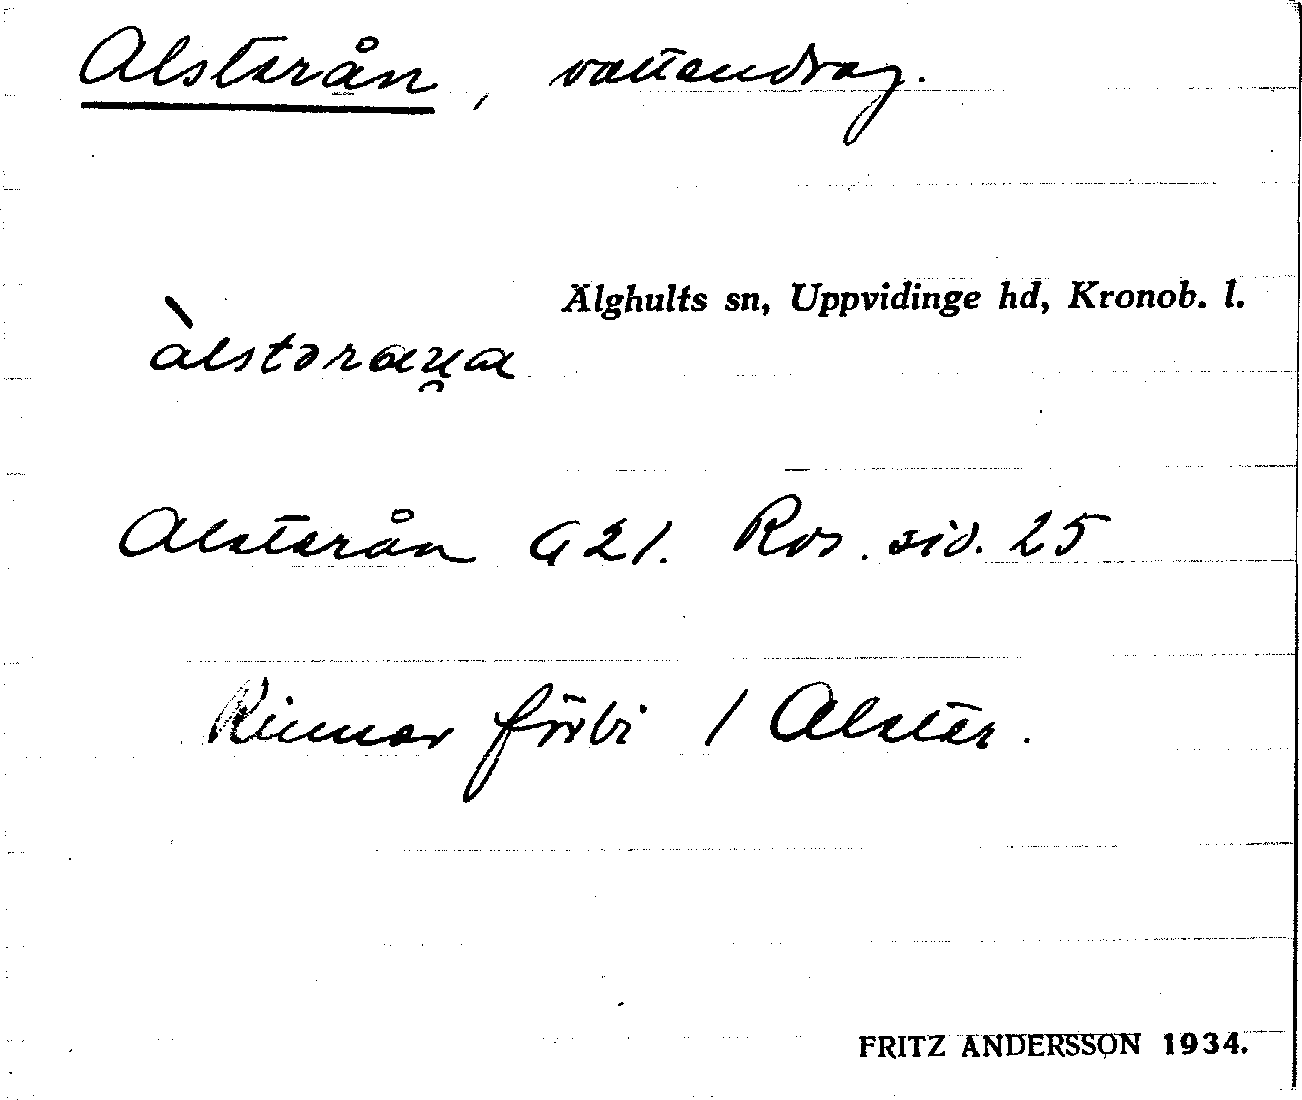 Alsterån, vattendrag.
Älghults sn, Uppvidinge hd, Kronob. l.
àlstərɑu̯ɑ
Alsterån G 21. Ros. sid. 25
Rinner förbi / Alster.
FRITZ ANDERSSON 1934.